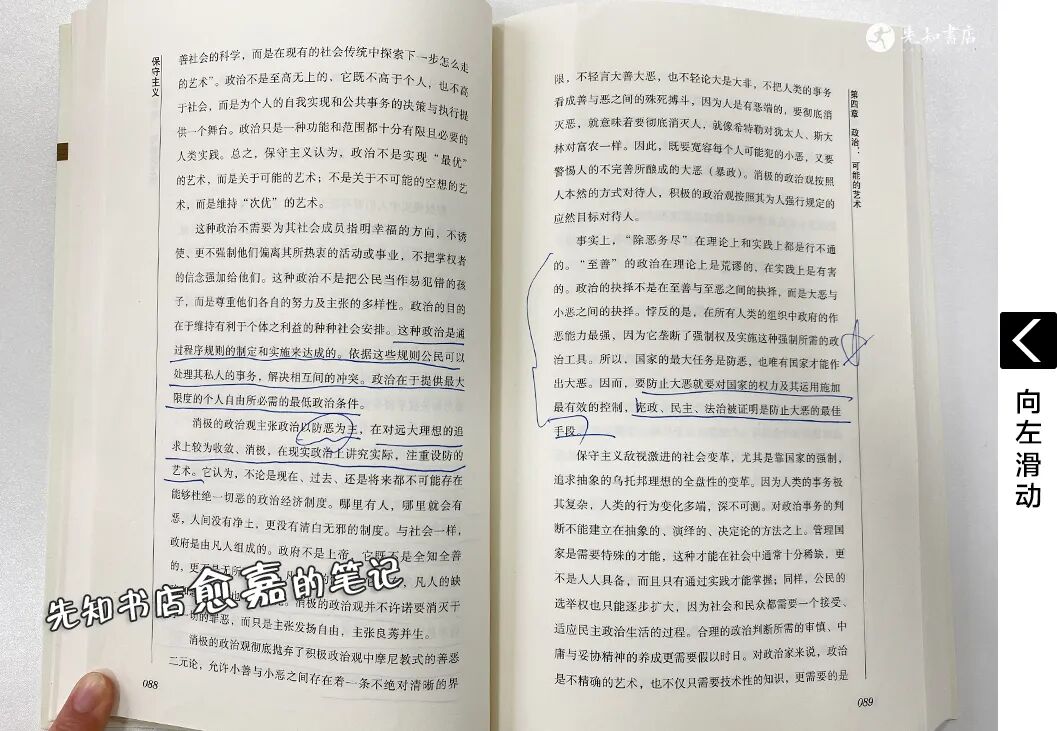 保守主义
善社会的科学，而是在现有的社会传统中探索下一步怎么走
的艺术”。政治不是至高无上的，它既不高于个人，也不高
于社会，而是为个人的自我实现和公共事务的决策与执行提
供一个舞台。政治只是一种功能和范围都十分有限且必要的
人类实践。总之，保守主义认为，政治不是实现“最优”
的艺术，而是关于可能的艺术；不是关于不可能的空想的艺
术，而是维持“次优”的艺术。
这种政治不需要为其社会成员指明幸福的方向，不诱
使、更不强制他们偏离其所热衷的活动或事业，不把掌权者
的信念强加给他们。这种政治不是把公民当作易犯错的孩
子，而是尊重他们各自的努力及主张的多样性。政治的目的
在于维持有利于个体之利益的种种社会安排。这种政治是通
过程序规则的制定和实施来达成的。依据这些规则公民可以
处理其私人的事务，解决相互间的冲突。政治在于提供最大
限度的个人自由所必需的最低政治条件。
消极的政治观主张政治以防恶为主，在对远大理想的追
求上较为收敛、消极，在现实政治上讲究实际，注重设防的
艺术。它认为，不论是现在、过去、还是将来都不可能存在
能够杜绝一切恶的政治经济制度。哪里有人，哪里就会有
恶，人间没有净土，更没有清白无邪的制度。与社会一样，
政府是由凡人组成的。政府不是上帝，它既不是全知全善
的，更不是无所
凡人的缺
消极的政治观并不许诺要消灭于
一切的罪恶，而只是主张发扬自由，主张良莠并生。
消极的政治观彻底抛弃了积极政治观中摩尼教式的善恶
二元论，允许小善与小恶之间存在着一条不绝对清晰的界
088
先知书店愈嘉的笔记
先知书店
第四章 政治：可能的艺术
限，不轻言大善大恶，也不轻论大是大非，不把人类的事务
看成善与恶之间的殊死搏斗，因为人是有恶端的，要彻底消
灭恶，就意味着要彻底消灭人，就像希特勒对犹太人、斯大
林对富农一样。因此，既要宽容每个人可能犯的小恶，又要
警惕人的不完善所酿成的大恶（暴政）。消极的政治观按照
人本然的方式对待人，积极的政治观按照其为人强行规定的
应然目标对待人。
事实上，“除恶务尽”在理论上和实践上都是行不通
的。“至善”的政治在理论上是荒谬的，在实践上是有害
的。政治的抉择不是在至善与至恶之间的抉择，而是大恶与
小恶之间的抉择。悖反的是，在所有人类的组织中政府的作
恶能力最强，因为它垄断了强制权及实施这种强制所需的政
治工具。所以，国家的最大任务是防恶，也唯有国家才能作
出大恶。因而，要防止大恶就要对国家的权力及其运用施加
最有效的控制，宪政、民主、法治被证明是防止大恶的最佳
手段。
保守主义敌视激进的社会变革，尤其是靠国家的强制，
追求抽象的乌托邦理想的全盘性的变革。因为人类的事务极
其复杂，人类的行为变化多端，深不可测。对政治事务的判
断不能建立在抽象的、演绎的、决定论的方法之上。管理国
家是需要特殊的才能，这种才能在社会中通常十分稀缺，更
不是人人具备，而且只有通过实践才能掌握；同样，公民的
选举权也只能逐步扩大，因为社会和民众都需要一个接受、
适应民主政治生活的过程。合理的政治判断所需的审慎、中
庸与妥协精神的养成更需要假以时日。对政治家来说，政治
是不精确的艺术，也不仅只需要技术性的知识，更需要的是
089
向左滑动